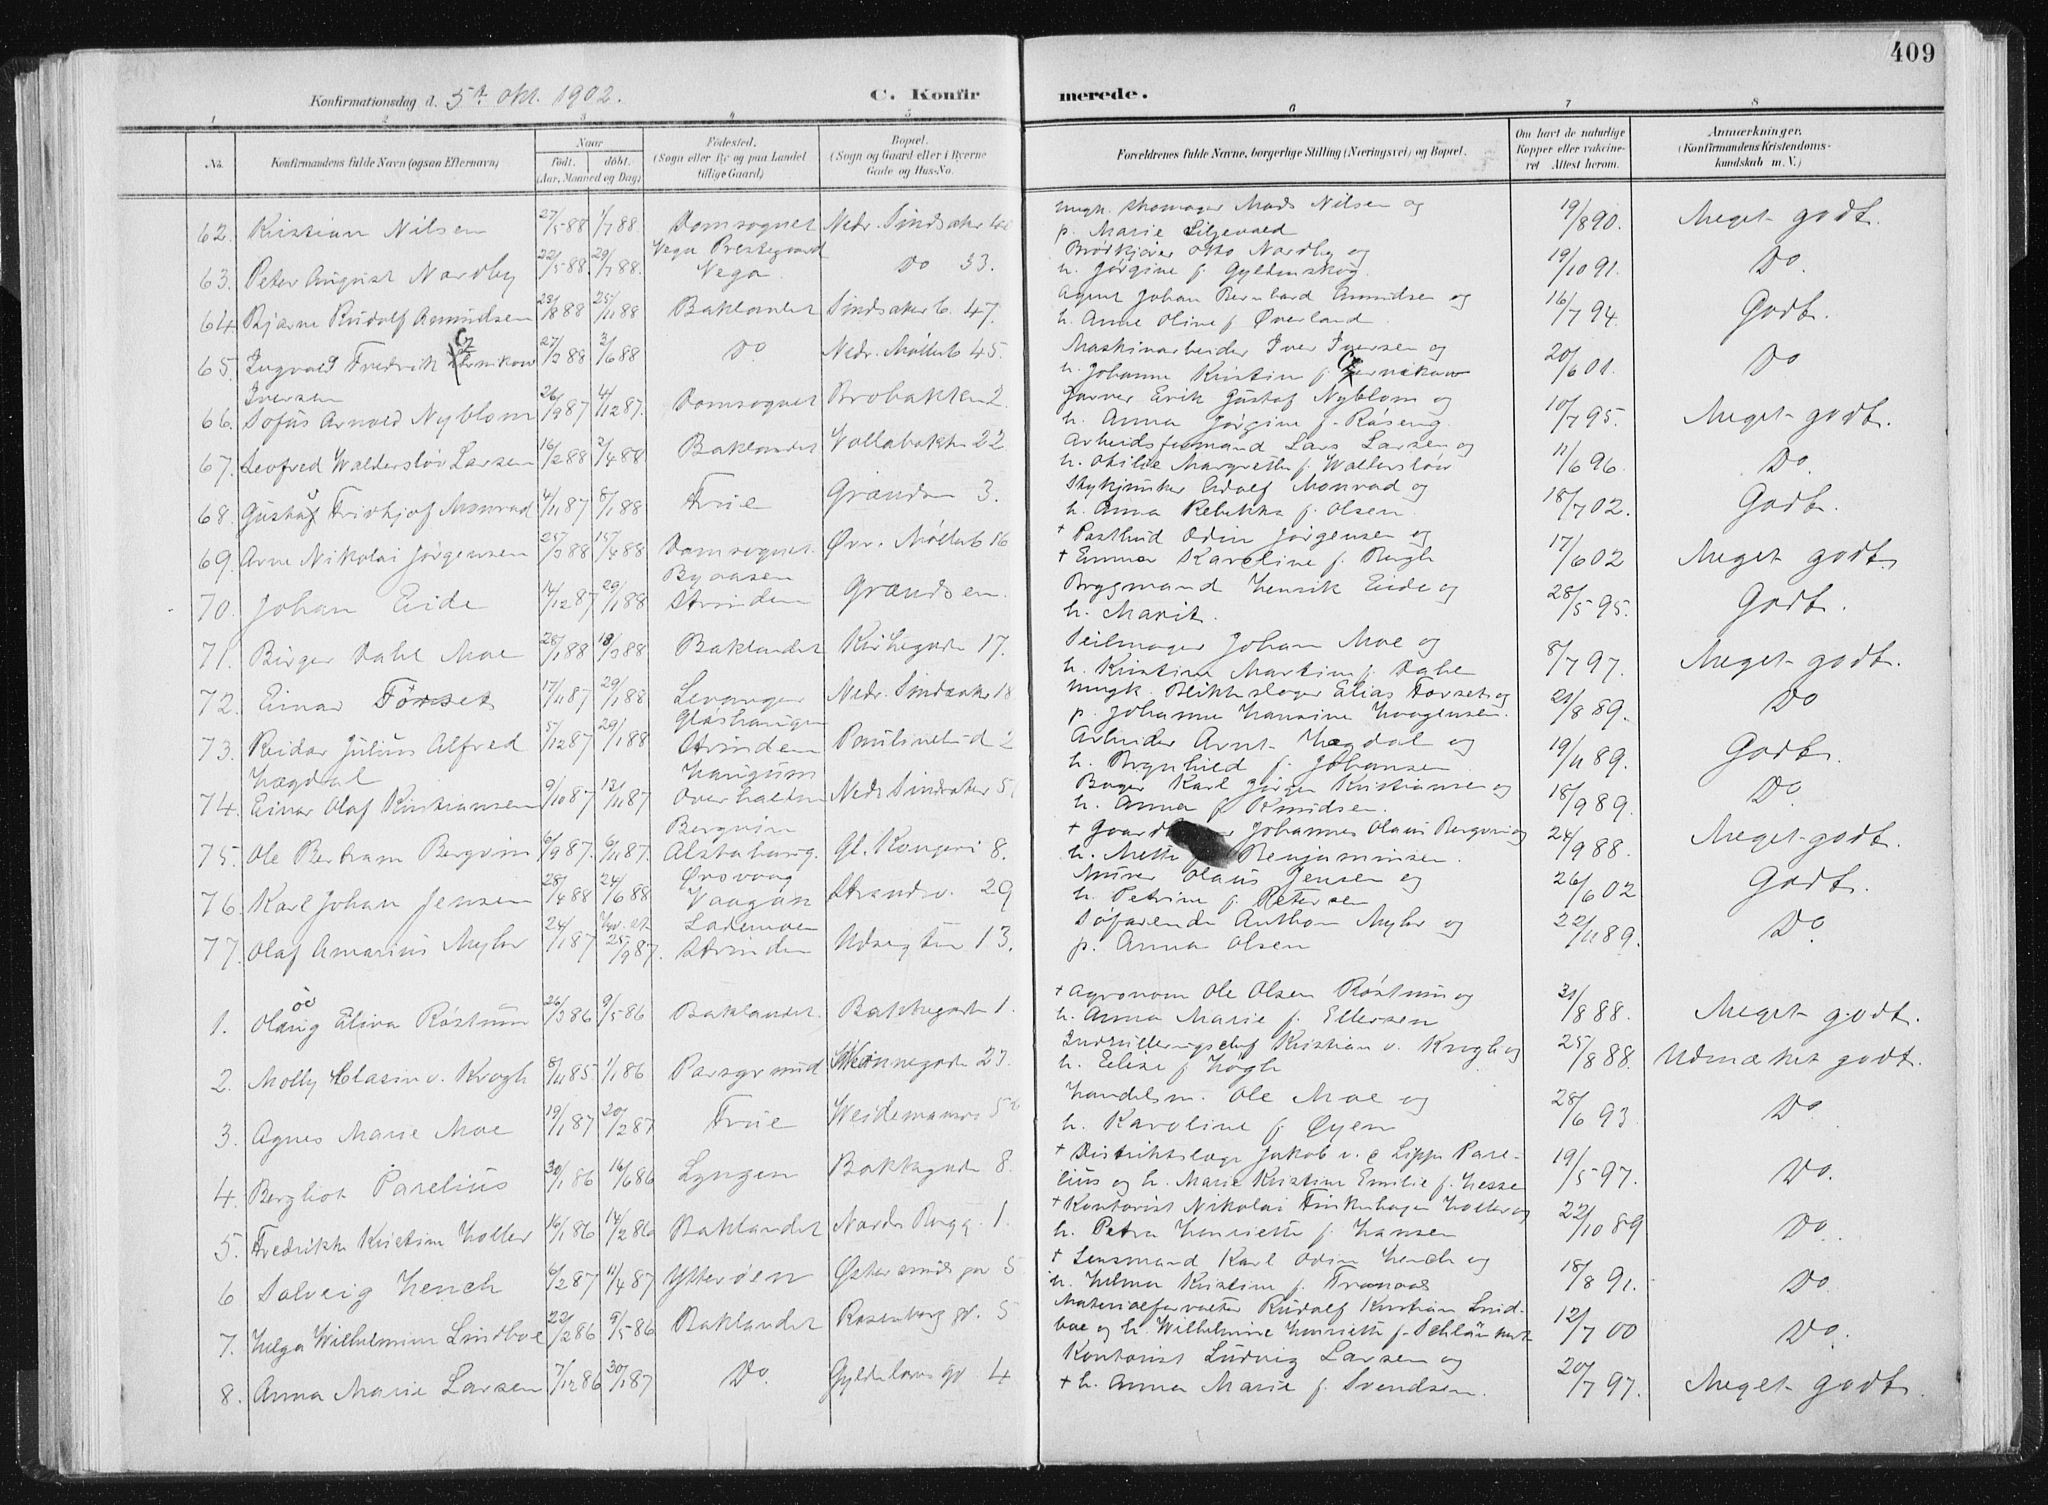 409
Konfirmationsdag d. 5te Okt. 1902. C. Konfirmerede.
1 2 3 4 5 6 7 8
No. Konfirmandens fulde Navn (ogsaa Efternavn) Naar Født. døbt. (Aar, Maaned og Dag) Fødested. (Sogn eller By og paa Landet tillige Gaard) Bopæl. (Sogn og Gaard eller i Byerne Gade og Hus-No. Forældrenes fulde Navne, borgerlige Stilling (Næringsvei) og Bopæl. Om havt de naturlige Kopper eller vaccineret Attest herom. Anmærkninger. (Konfirmandens Kristendomskundskab m. V.)
62. Kristian Nilsen 27/5 88 1/7 88 Domsognet Nedr. Sindsaker ungk. Skomager Mads Nilsen og p. Marie Liljevold 19/8 90. Meget godt.
63. Peter August Nordby 22/5 88. 29/7 88. Vega Prestegaard Vega. Do 33. Brødkjører Otto Nordby og h. Jørgine f. Gyldenskog. 19/10 91. Do.
64. Bjarne Rudolf Amundsen 23/8 88 25/11 88 Baklandet Sindsaker b. 47. Agent Johan Bernhard Amundsen og h. Anne Oline f. Øverland. 16/7 94. Godt.
65. Ingvald Fredrik Iversen 27/3 88 3/6 88 Do Nedr. Møllerb 45. Maskinarbeider Iver Iversen og h. Johanne Kristine f. 20/6 01. Do
66. Sofus Arnold Nyblom 26/9 87 4/12 87. Domsognet Brobakken 2. Garver Erik Gustaf Nyblom og h. Anna Jørgine f. Røseng. 10/7 95. Meget godt.
67. Leofred Waldersløv Larsen 16/2 88 2/4 88 Baklandet Vollabakke 22 Arbeidsformand Lars Larsen og h. Otilie Margrethe f. Wallersløv 11/6 96. Do.
68. Gustav Fridhjof Monrad 4/11 87 8/1 88 Frue Grændsen 3. Stykjunker Adolf Monrad og h. Anna Rebekka f. Olsen. 18/7 02. Godt.
69. Arne Nikolai Jørgensen 25/3 88 15/4 88 Domsognet. Øvr. Møllerb 16 + Postbud Odin Jørgensen og + Emma Karoline f. Bergh 17/6 02 Meget godt.
70. Johan Eide 14/12 87 29/1 88 Byaasen Strinden Grændsen. Brygmand Henrik Eide og h. Marit. 28/5 95. Godt.
71. Birger Dahl Moe 28/1 88 18/3 88 Baklandet Kirkegade 17. Seilmager Johan Moe og h. Kristine Martine f. Dahl 8/7 97. Meget godt.
72. Einar Forset 17/11 87 29/1 88 Levanger Nedr. Sindsaker 18 ungk. Blikkslager Elias Forset og p. Johanne Hansine Haagensen. 21/8 89. Do
73. Reidar Julius Alfred Hægdal 5/12 87 29/1 88 Glashaugen Strinden Paulinelid 2 Arbeider Arnt Hægdal og h. Brynhild f. Johansen 19/11 89. Godt.
74. Einar Olaf Kristiansen 9/10 87 12/11 87 Haugum Overhalden Nedr. Sindsaker 5 Bager Karl Jørgen Kristiansen og h. Anna f. Knudsen. 18/9 89. Do.
75. Ole Bertram Bergvin 6/9 87. 6/11 87. Bergvin Alstahaug. Gl. Kongevei 8. + Johannes Olaus Bergvin og h. Mette Benjaminsen. 24/9 88. Meget godt.
76. Karl Johan Jensen 28/4 88 24/6 88 Ørsvaag Vaagan Strandv. 29 Murer Olaus Jensen og h. Petrine f. Petersen 26/6 02 Godt.
77. Olaf Amarius Myhr 24/1 87 25/9 87. Lademoen Strinden Udsigten 13. Søfarende Anthon Myhr og p. Anna Olsen 22/11 89. Do.
1. Oliva Røstum 26/3 86 9/5 86 Baklandet. Bakkegade 1. + Agronom Ole Olsen Røstum og h. Anna Marie f. Ellersen 31/8 88. Meget godt.
2. Molly Clasin v. Krogh 8/11 85 1/1 86 Porsgrund 27 Indrulleringschef Kristian v. Krogh og h. Elise f. Høgh 25/8 88. Udmærket godt.
3. Agnes Marie Moe 19/1 87 20/2 87 Frue Weidemansv. Handelsm. Ole Moe og h. Karoline f. Øyen 28/6 93. Do.
4. Bergliot Parelius 30/1 86 16/6 86 Lyngen Bakkegade 8. + Distriktslæge Jakob v. d. Lippe Parelius og h. Marie Kristine Emilie f. Hesse 19/5 97. Do.
5. Fredrikke Kristine Holler 16/1 86 14/2 86 Baklandet Nordr. Brygg. 1. + Kontorist Nikolai Finkenhagen Holler og h. Petra Henriette f. Hansen 22/10 89 Do.
6 Solveig Hench 6/2 87 11/4 87 Ytterøen 5 + Lensmand Karl Odin Hench og h. Helma Kristine f. Tranaas 18/8 91. Do.
7. Helga Wilhelmine Lindboe 22/2 86 9/5 86 Baklandet Rosenborg gd. 5 Materialforvalter Rudolf Kristian Lindboe og h. Wilhelmine Henriette f. 12/7 00 Do.
8. Anna Marie Larsen 7/12 86 30/1 87 Do. Gyldenløves gd 4 Kontorist Ludvig Larsen og + h. Anna Marie f. Svendsen. 20/7 97. Meget godt.